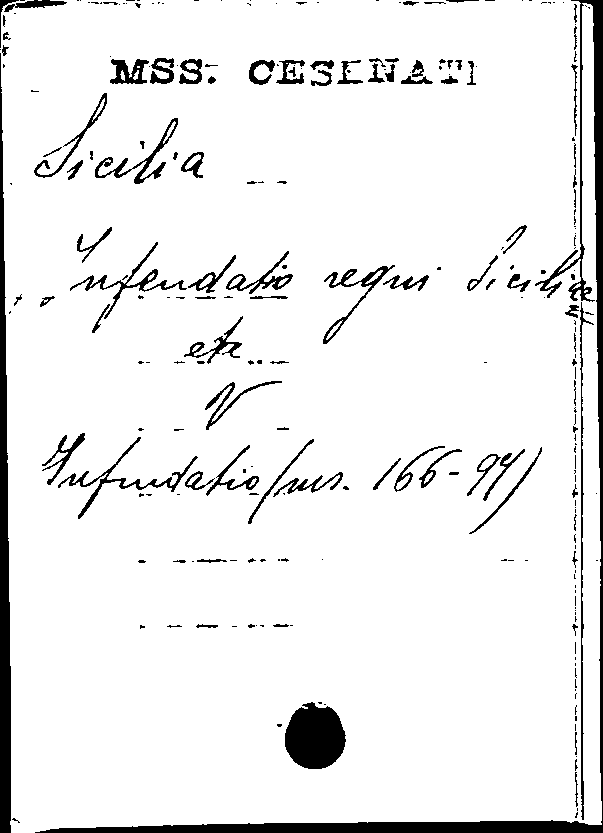 MSS. CESENATI
Sicilia
„Infeudatio regni Siciliae"
etc.
V
Infeudatio (ms. 166-97)